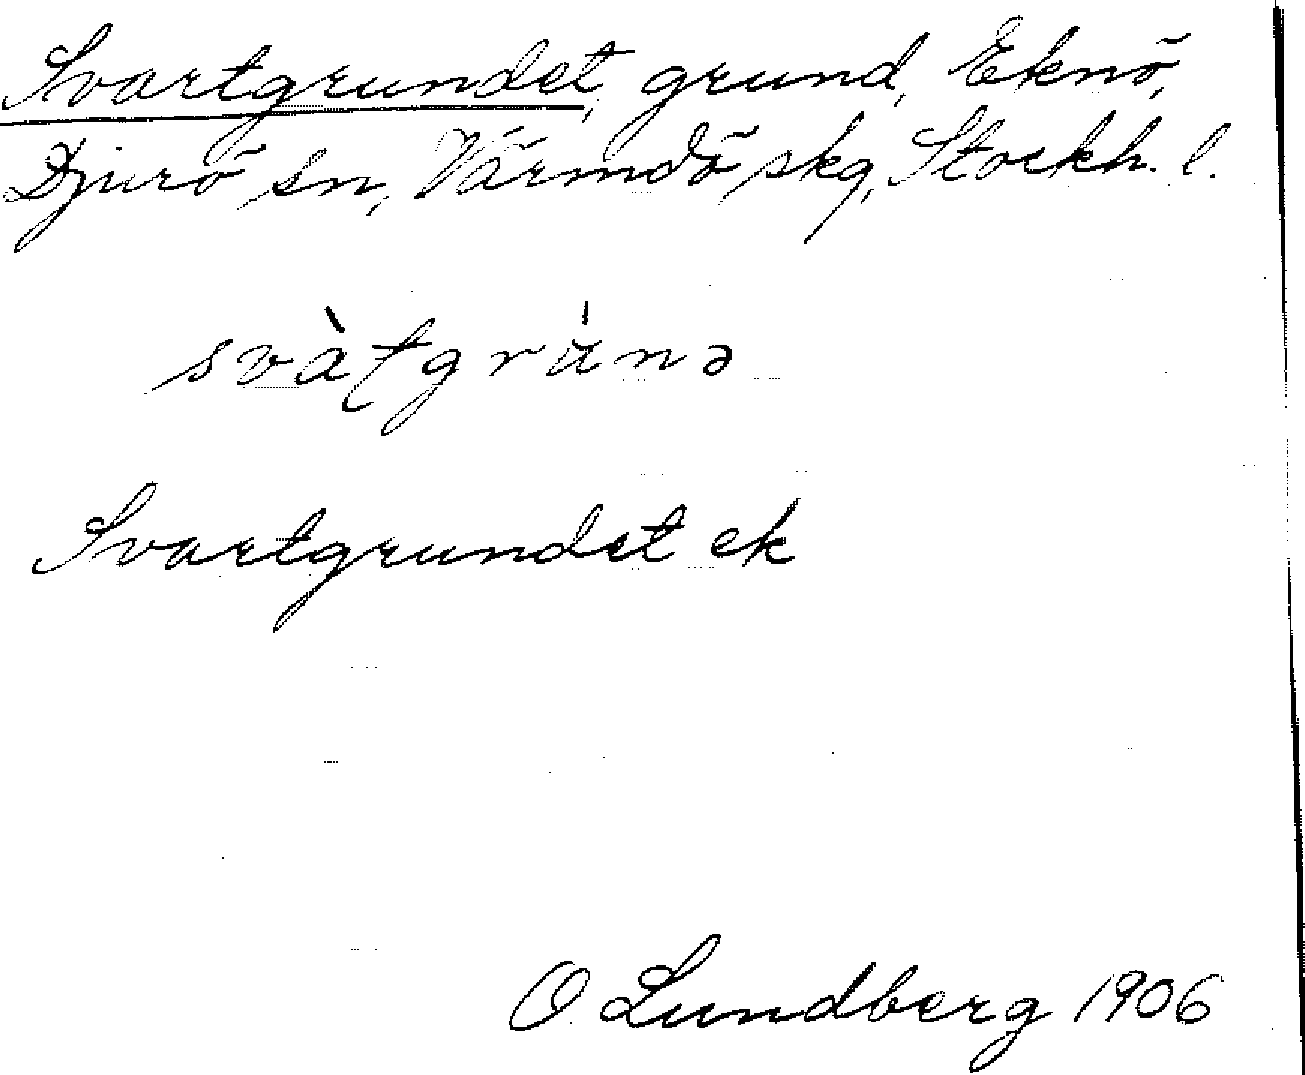 Svartgrundet, grund, Eknö,
Djurö sn, Värmdö skg, Stockh. l.
svàʈgru̍nə
Svartgrundet ek
O. Lundberg 1906